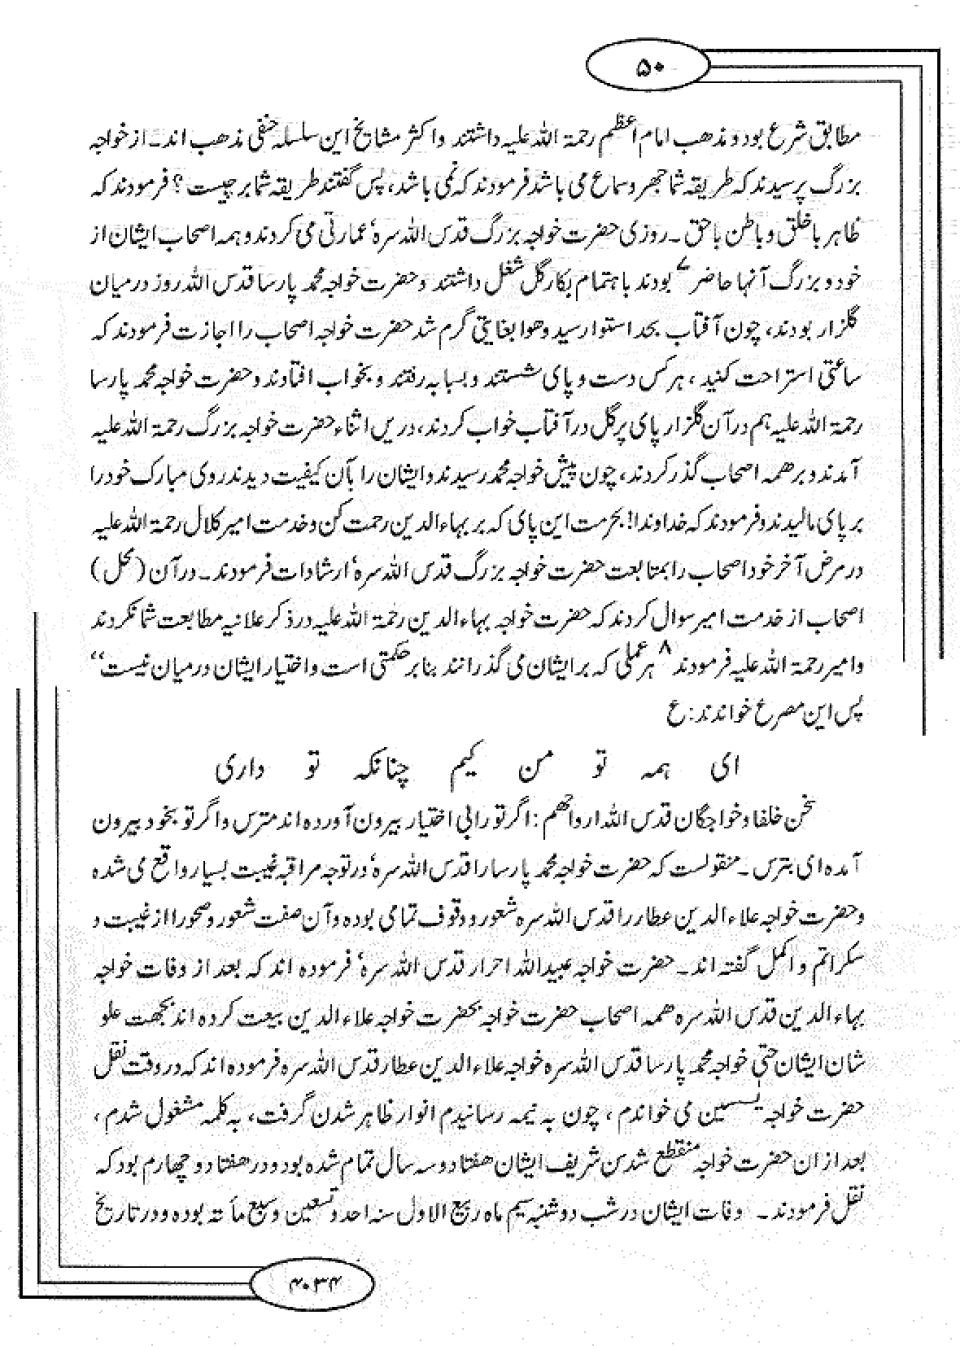 ۵۰
مطابق شرع بود و مذهب امام اعظم رحمة الله علیه داشتند و اکثر مشایخ این سلسله حنفی مذهب اند۔ از خواجه
بزرگ پرسیدند که طریقه شما جهر و سماع می باشد فرمودند که نمی باشد، پس گفتند طریقه شما بر چیست؟ فرمودند که
ظاهر با خلق و باطن باحق۔ روزی حضرت خواجه بزرگ قدس الله سرهٗ عمارتی می کردند و همه اصحاب ایشان از
خود و بزرگ آنها حاضر ۷ بودند باهتمام بکار گل شغل داشتند و حضرت خواجه محمد پارسا قدس الله روز درمیان
گلزار بودند، چون آفتاب بحد استوار سید و هوا بغایتی گرم شد حضرت خواجه اصحاب را اجازت فرمودند که
ساعتی استراحت کنید، هر کس دست و پای شستند و بسایه رفتند و بخواب افتادند و حضرت خواجه محمد پارسا
رحمة الله علیه هم در آن گلزار پای پر گل در آفتاب خواب کردند، درین اثناء حضرت خواجه بزرگ رحمة الله علیه
آمدند و بر همه اصحاب گذر کردند، چون پیش خواجه محمد رسیدند و ایشان را بآن کیفیت دیدند روی مبارک خود را
بر پای مالیدند و فرمودند که خداوندا! بحرمت این پای که بر بهاء الدین رحمت کن و خدمت امیر کلال رحمة الله علیه
در مرض آخر خود اصحاب را بمتابعت حضرت خواجه بزرگ قدس الله سرهٗ ارشادات فرمودند۔ در آن (محل)
اصحاب از خدمت امیر سوال کردند که حضرت خواجه بهاء الدین رحمة الله علیه در ذکر علانیه مطابعت شما نکردند
و امیر رحمة الله علیه فرمودند ۸ هر عملی که بر ایشان می گذرانند بنابر حکمتی است و اختیار ایشان درمیان نیست“
پس این مصرع خواندند: ع
ای همه تو من کیم چنانکه تو داری
سخن خلفا و خواجگان قدس الله ارواحهم: اگر تو را بی اختیار بیرون آورده اند مترس و اگر تو بخود بیرون
آمده ای بترس۔ منقولست که حضرت خواجه محمد پارسا را قدس الله سرهٗ در توجه مراقبه غیبت بسیار واقع می شده
و حضرت خواجه علاء الدین عطار را قدس الله سره شعور و وقوف تمامی بوده و آن صفت شعور و صحورا از غیبت و
سکر اتم و اکمل گفته اند۔ حضرت خواجه عبید الله احرار قدس الله سرهٗ فرموده اند که بعد از وفات خواجه
بهاء الدین قدس الله سره همه اصحاب حضرت خواجه بحضرت خواجه علاء الدین بیعت کرده اند بجهت علو
شان ایشان حتیٰ خواجه محمد پارسا قدس الله سره خواجه علاء الدین عطار قدس الله سره فرموده اند که در وقت نقل
حضرت خواجه یٰسین می خواندم، چون به نیمه رسانیدم انوار ظاهر شدن گرفت، به کلمه مشغول شدم،
بعد از ان حضرت خواجه منقطع شدن شریف ایشان هفتاد و سه سال تمام شده بود و در هفتاد و چهارم بود که
نقل فرمودند۔ وفات ایشان در شب دوشنبه سیم ماه ربیع الاول سنه احد و تسعین و سبع مأته بوده و در تاریخ
۴۰۳۴